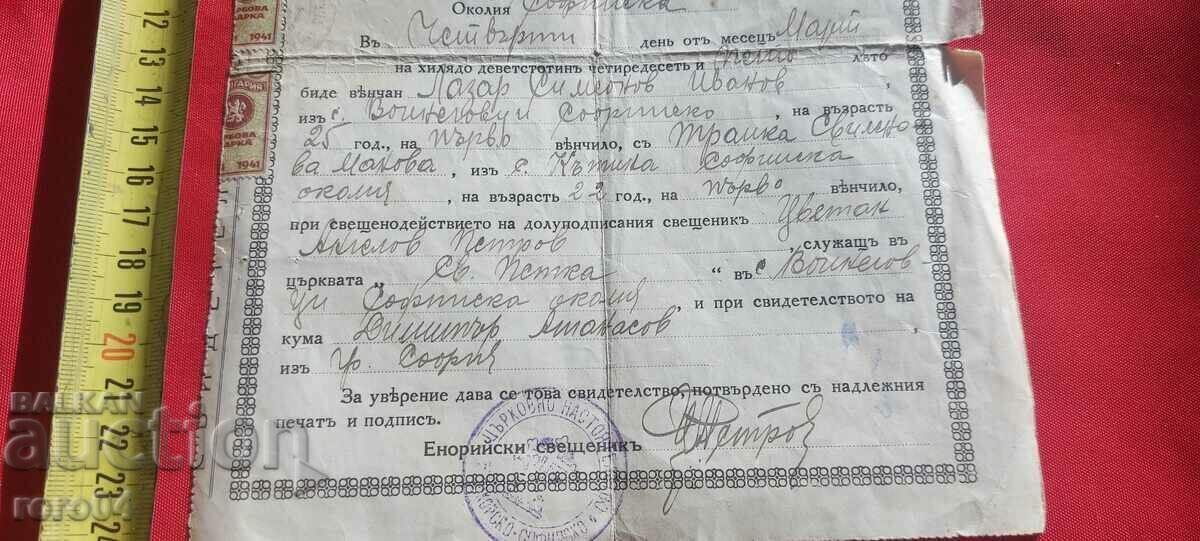 Околия Софийска
Въ Четвърти день отъ месецъ Марий
на хилядо деветстотинъ четиридесеть и пето лѣто
биде вѣнчан Лазар Симеонов Иванов,
изъ с. Воинеговци Софийско, на възрасть
25 год., на първо вѣнчило, съ Трайка Свилено-
ва Макова, изъ с. Кътина Софийска
околия, на възрасть 22 год., на първо вѣнчило,
при свещенодействието на долуподписания свещеникъ Цветан
Ангелов Петров, служащъ въ
църквата „Св. Петка" въ с. Воинегов
ци Софийска околия, и при свидетелството на
кума Димитър Атанасов,
изъ гр. София
За увѣрение дава се това свидетелство, потвърдено съ надлежния
печатъ и подпись.
Енорийски свещеникъ Петров
ЦЪРКОВНО НАСТО
1941
БЪЛГАРИЯ
ГЕРБОВА
МАРКА
1941
12 13 14 15 16 17 18 19 20 21 22 23 24
BALKAN
auction
roro04